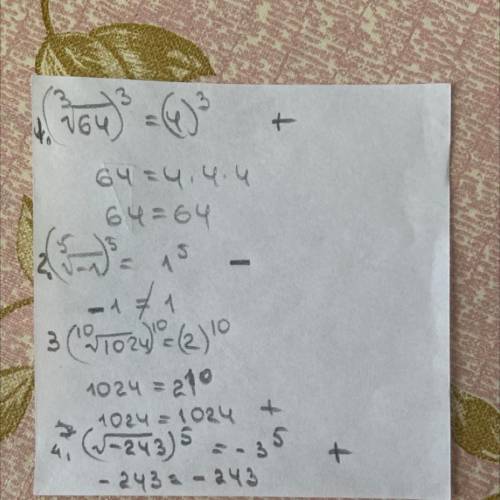 1. (³√64)³ = (4)³ +
64 = 4 · 4 · 4
64 = 64
2. (⁵√-1)⁵ = 1⁵ -
-1 ≠ 1
3 (¹⁰√1024)¹⁰ = (2)¹⁰
1024 = 2¹⁰
1024 = 1024 +
4. (√-243)⁵ = -3⁵ +
-243 = -243